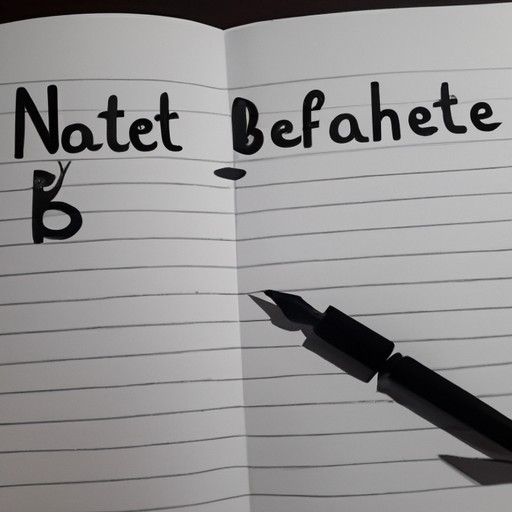 Natet Befahete
B